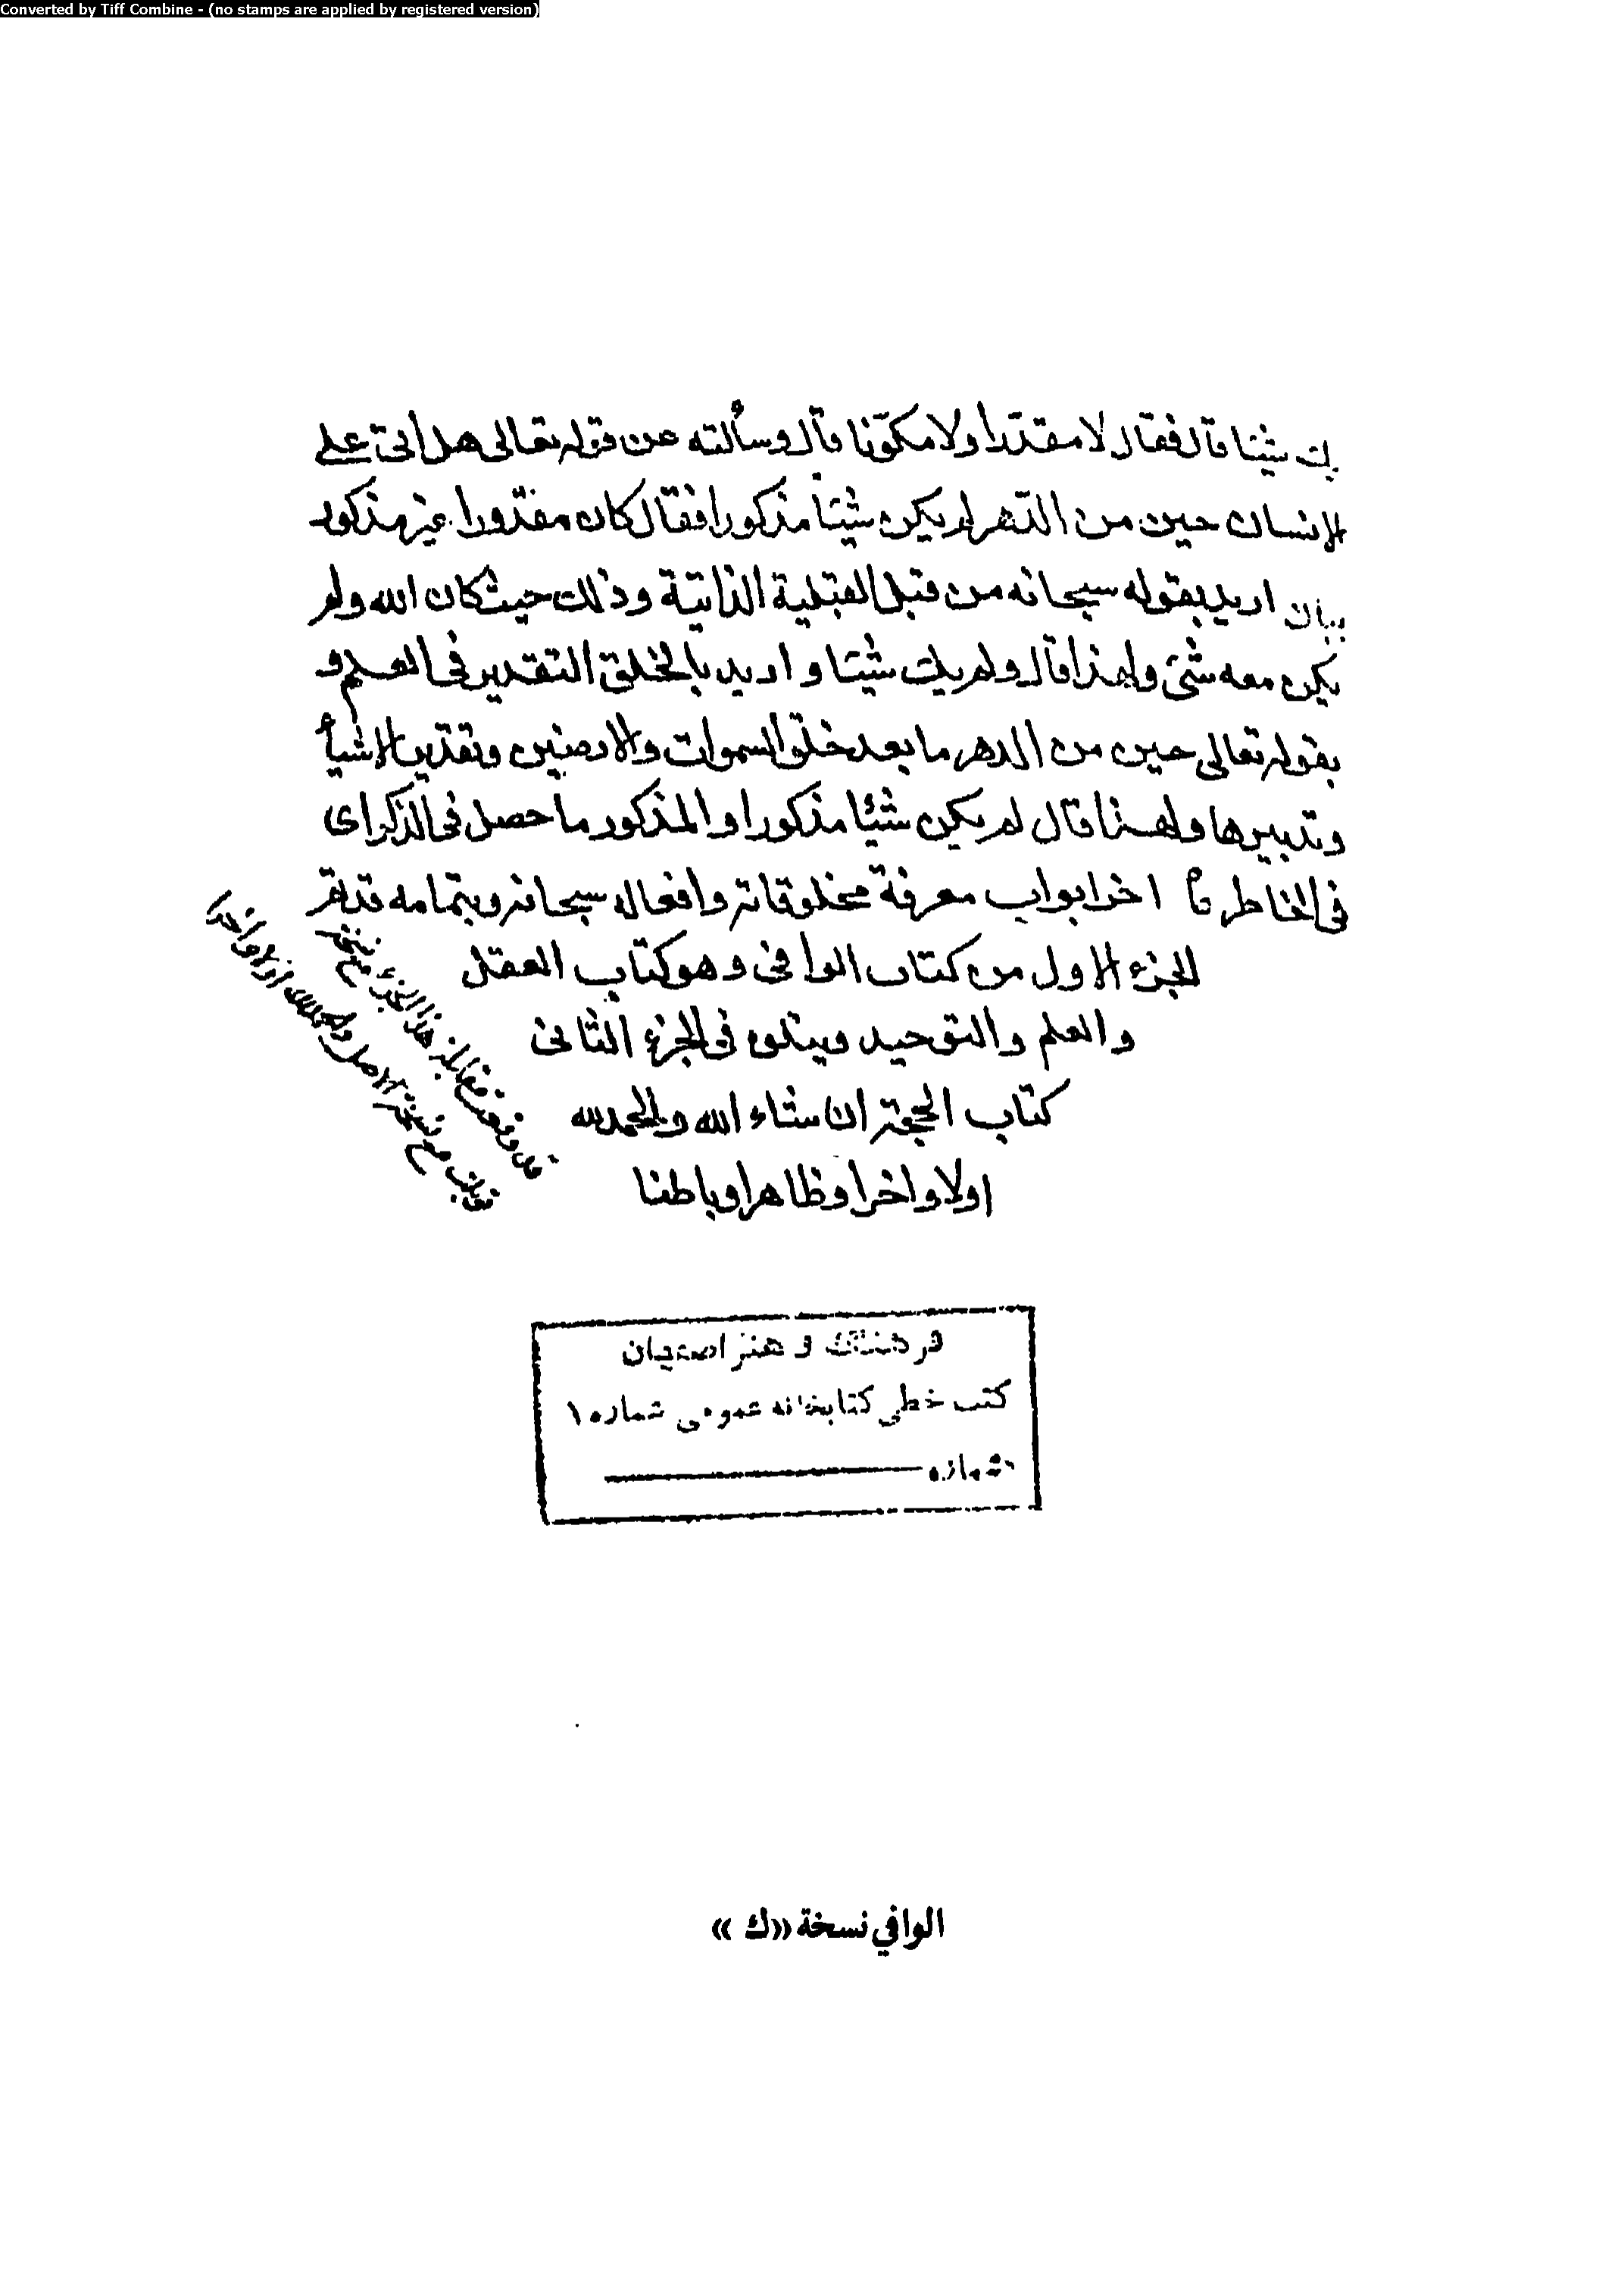 Converted by Tiff Combine - (no stamps are applied by registered version)
يك شيئا قال فقال لا مقدرا ولا مكوّنا قال وسألته عن قوله تعالى هل اتى على
الانسان حين من الدّهر لم يكن شيئاً مذكورا فقال كان مقدّورا غير مذكور
بيان اريد بقوله سبحانه من قبل القبلية الذاتية وذلك حيث كان الله ولم
يكن معه شئ ولهذا قال ولم يك شيئا واريد بالخلق التقدير فى العلم و
بقوله تعالى حين من الدهر ما بعد خلق السموات والارضين وتقدير الاشيأ
وتدبيرها ولهذا قال لم يكن شيئا مذكورا والمذكور ما حصل فى الذكر اى
فى الخاطر اخر ابواب معرفة مخلوقاته وافعاله سبحانه وبتمامه قد تم
الجزء الاول من كتاب الوافى وهو كتاب العقل
والعلم والتوحيد ويتلوه فى الجزء الثانى
كتاب الحجة ان شاء الله والحمد لله
اولا واخرا وظاهرا وباطنا
مقابلة هذا الجزء مع نسخة
مع نسخة الاصل والحمد لله اولا واخرا
فرهنگ و هنر اصفهان
كتب خطى كتابخانه عمومى شماره ۱
شماره
الوافي نسخة «ك»